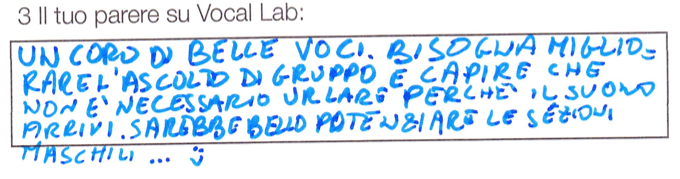 3 Il tuo parere su Vocal Lab:
UN CORO DI BELLE VOCI. BISOGNA MIGLIO-
RARE L'ASCOLTO DI GRUPPO E CAPIRE CHE
NON E' NECESSARIO URLARE PERCHE' IL SUONO
ARRIVI. SAREBBE BELLO POTENZIARE LE SEZIONI
MASCHILI ... :)